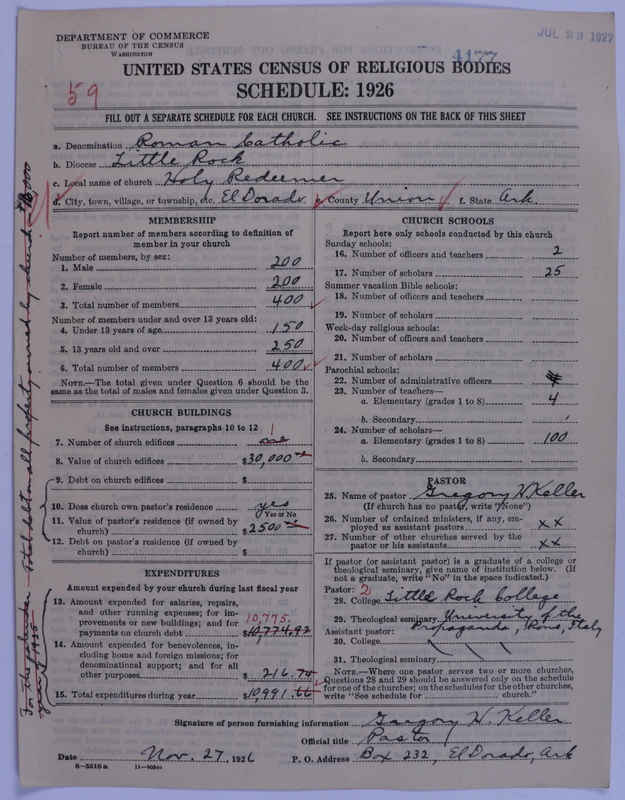 DEPARTMENT OF COMMERCE
BUREAU OF THE CENSUS
WASHINGTON
JUL 23 1927
4177
UNITED STATES CENSUS OF RELIGIOUS BODIES
59
SCHEDULE: 1926
FILL OUT A SEPARATE SCHEDULE FOR EACH CHURCH. SEE INSTRUCTIONS ON THE BACK OF THIS SHEET
a. Denomination Roman Catholic
b. Diocese Little Rock
c. Local name of church Holy Redeemer
d. City, town, village, or township, etc. El Dorado e. County Union f. State Ark.
MEMBERSHIP
Report number of members according to definition of
member in your church
Number of members, by sex:
1. Male 200
2. Female 200
3. Total number of members 400
Number of members under and over 13 years old:
4. Under 13 years of age 150
5. 13 years old and over 250
6. Total number of members 400
NOTE.—The total given under Question 6 should be
same as the total of males and females given under Question 3.
CHURCH BUILDINGS
See instructions, paragraphs 10 to 12
7. Number of church edifices one 1
8. Value of church edifices $30,000
9. Debt on church edifices $
10. Does church own pastor's residence yes
Yes or No
11. Value of pastor's residence (if owned by
church) $2500
12. Debt on pastor's residence (if owned by
church) $
EXPENDITURES
Amount expended by your church during last fiscal year
13. Amount expended for salaries, repairs,
and other running expenses; for im-
provements or new buildings; and for
payments on church debt $10,774.92
10,775.
14. Amount expended for benevolences, in-
cluding home and foreign missions; for
denominational support; and for all
other purposes $216.74
15. Total expenditures during year $10,991.66
CHURCH SCHOOLS
Report here only schools conducted by this church
Sunday schools:
16. Number of officers and teachers 2
17. Number of scholars 25
Summer vacation Bible schools:
18. Number of officers and teachers
19. Number of scholars
Week-day religious schools:
20. Number of officers and teachers
21. Number of scholars
Parochial schools:
22. Number of administrative officers
23. Number of teachers—
a. Elementary (grades 1 to 8) 4
b. Secondary
24. Number of scholars—
a. Elementary (grades 1 to 8) 100
b. Secondary
PASTOR
25. Name of pastor Gregory H Keller
(If church has no pastor, write "None")
26. Number of ordained ministers, if any, em-
ployed as assistant pastors x x
27. Number of other churches served by the
pastor or his assistants x x
If pastor (or assistant pastor) is a graduate of a college or
theological seminary, give name of institution below. (If
not a graduate, write "No" in the space indicated.)
Pastor: 2
28. College Little Rock College
29. Theological seminary University of the
Propaganda, Rome, Italy
Assistant pastor:
30. College
31. Theological seminary
NOTE.—Where one pastor serves two or more churches,
Questions 28 and 29 should be answered only on the schedule
for one of the churches; on the schedules for the other churches,
write "See schedule for church."
Signature of person furnishing information Gregory H Keller
Official title Pastor
Date Nov. 27, 1926 P. O. Address Box 232, El Dorado, Ark
8-5518a 11-9056
Total debt on all property owned by church $18,000
For the calendar
year of 1925